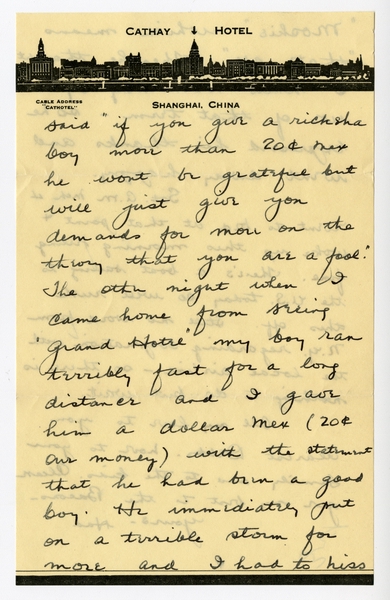 CATHAY HOTEL
CABLE ADDRESS
"CATHOTEL"
SHANGHAI, CHINA
said "if you give a ricksha
boy more than 20¢ mex
he wont be grateful but
will just give you
demands for more on the
theory that you are a fool."
The other night when I
came home from seeing
"Grand Hotel" my boy ran
terribly fast for a long
distance and I gave
him a dollar mex (20¢
our money) with the statement
that he had been a good
boy. He immediately put
on a terrible storm for
more and I had to hiss